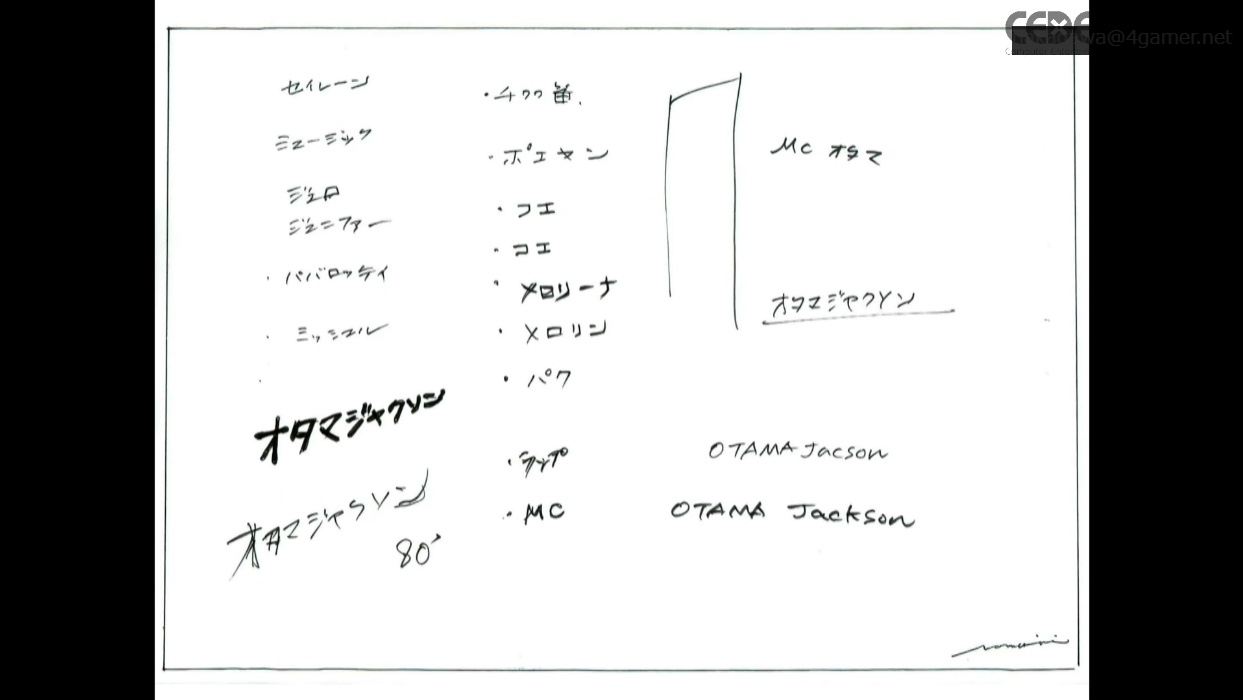 セイレーン
ミュージック
ジェロ
ジェニファー
・パバロッティ
・ミッシェル
オタマジャクソン
オタマジャクソン
80'
・ポエマン
・コエ
・コエ
・メロリーナ
・メロリン
・パク
・ラップ
・MC
MC オタマ
オタマジャクソン
OTAMA Jacson
OTAMA Jackson
CEDEC
va@4gamer.net